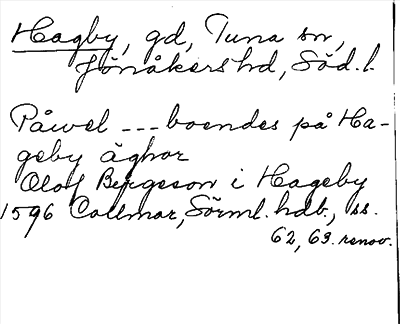 Hagby, gd, Tuna sn,
Jönåkers hd, Söd. l.
Påwel --- boendes på Ha-
geby äghor
Olof Birgeson i Hageby
1596 Collmar, Sörml. hdb., ss.
62, 63. renov.